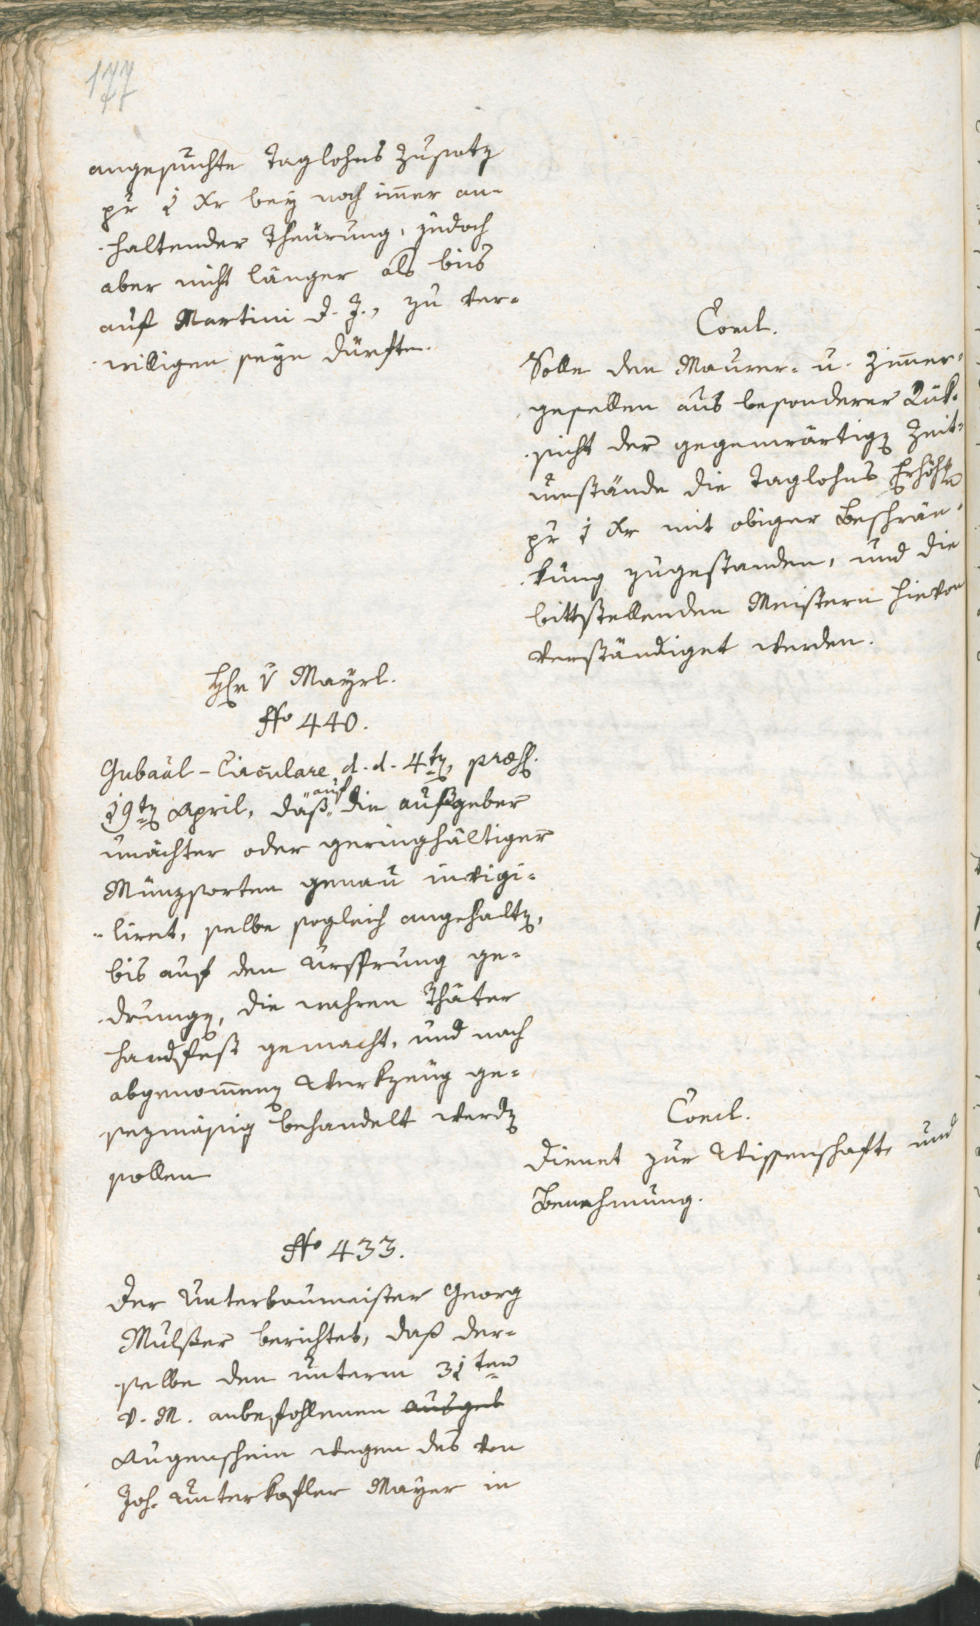 177
angesuchte Taglohns Zusatz
pr 1 Xr bey noch im̄er an-
haltender Theürung, jedoch
aber nicht länger als bis
auf Martini d. J., zu ver-
willigen seyn dürfte.
Concl.
Solle den Maurer- u. Zim̄er-
gesellen aus besonderer Rük-
sicht der gegenwärtigen Zeit-
umstände die Taglohns Erhöhung
pr 1 Xr mit obiger Beschrän-
kung zugestanden, und die
bittstellenden Meistern hievon
verständiget werden.
Hr v Mayrl.
No 440.
Gubaāl-Circulare d. d. 4ten, præs.
19ten April, daß auf die ausgeber
unächter oder geringhältiger
Münzsorten genau invigi-
liret, selbe sogleich angehalten,
bis auf den Ursprung ge-
drungen, die wahren Thäter
handfest gemacht, und nach
abgenom̄enen Werkzeug ge-
sezmäsig behandelt werden
sollen
Concl.
Dienet zur Wissenschaft, und
Benehmung.
No 433.
Der Unterbaumeister Georg
Mulser berichtet, daß der-
selbe den unterm 31ten
v. M. anbefohlenen ausgeb
Augenschein wegen des von
Joh. Unterkofler Mayer in